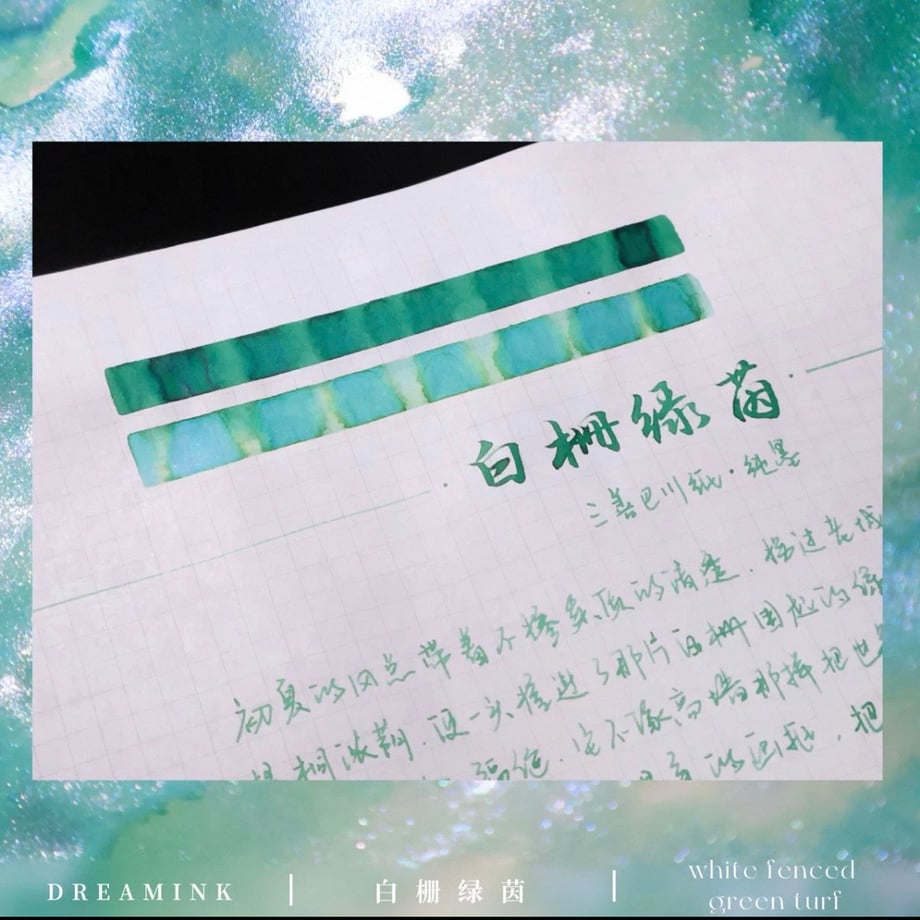 白栅绿茵
三善巴川纸·纯墨
初夏的风总带着不掺杂质的清透.掠过老城
一头撞进了那片白栅围起的绿
它不像高墙那样把世
的画框,把
DREAMINK | 白栅绿茵 | white fenced
green turf